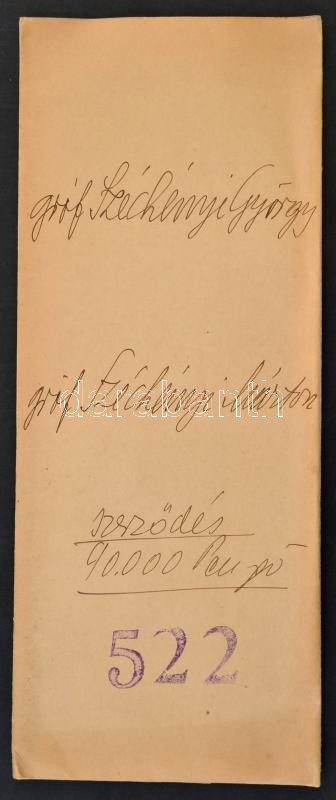 gróf Széchényi György
gróf Széchényi Márton
darabanth
szerződés
90.000 Pengő
522